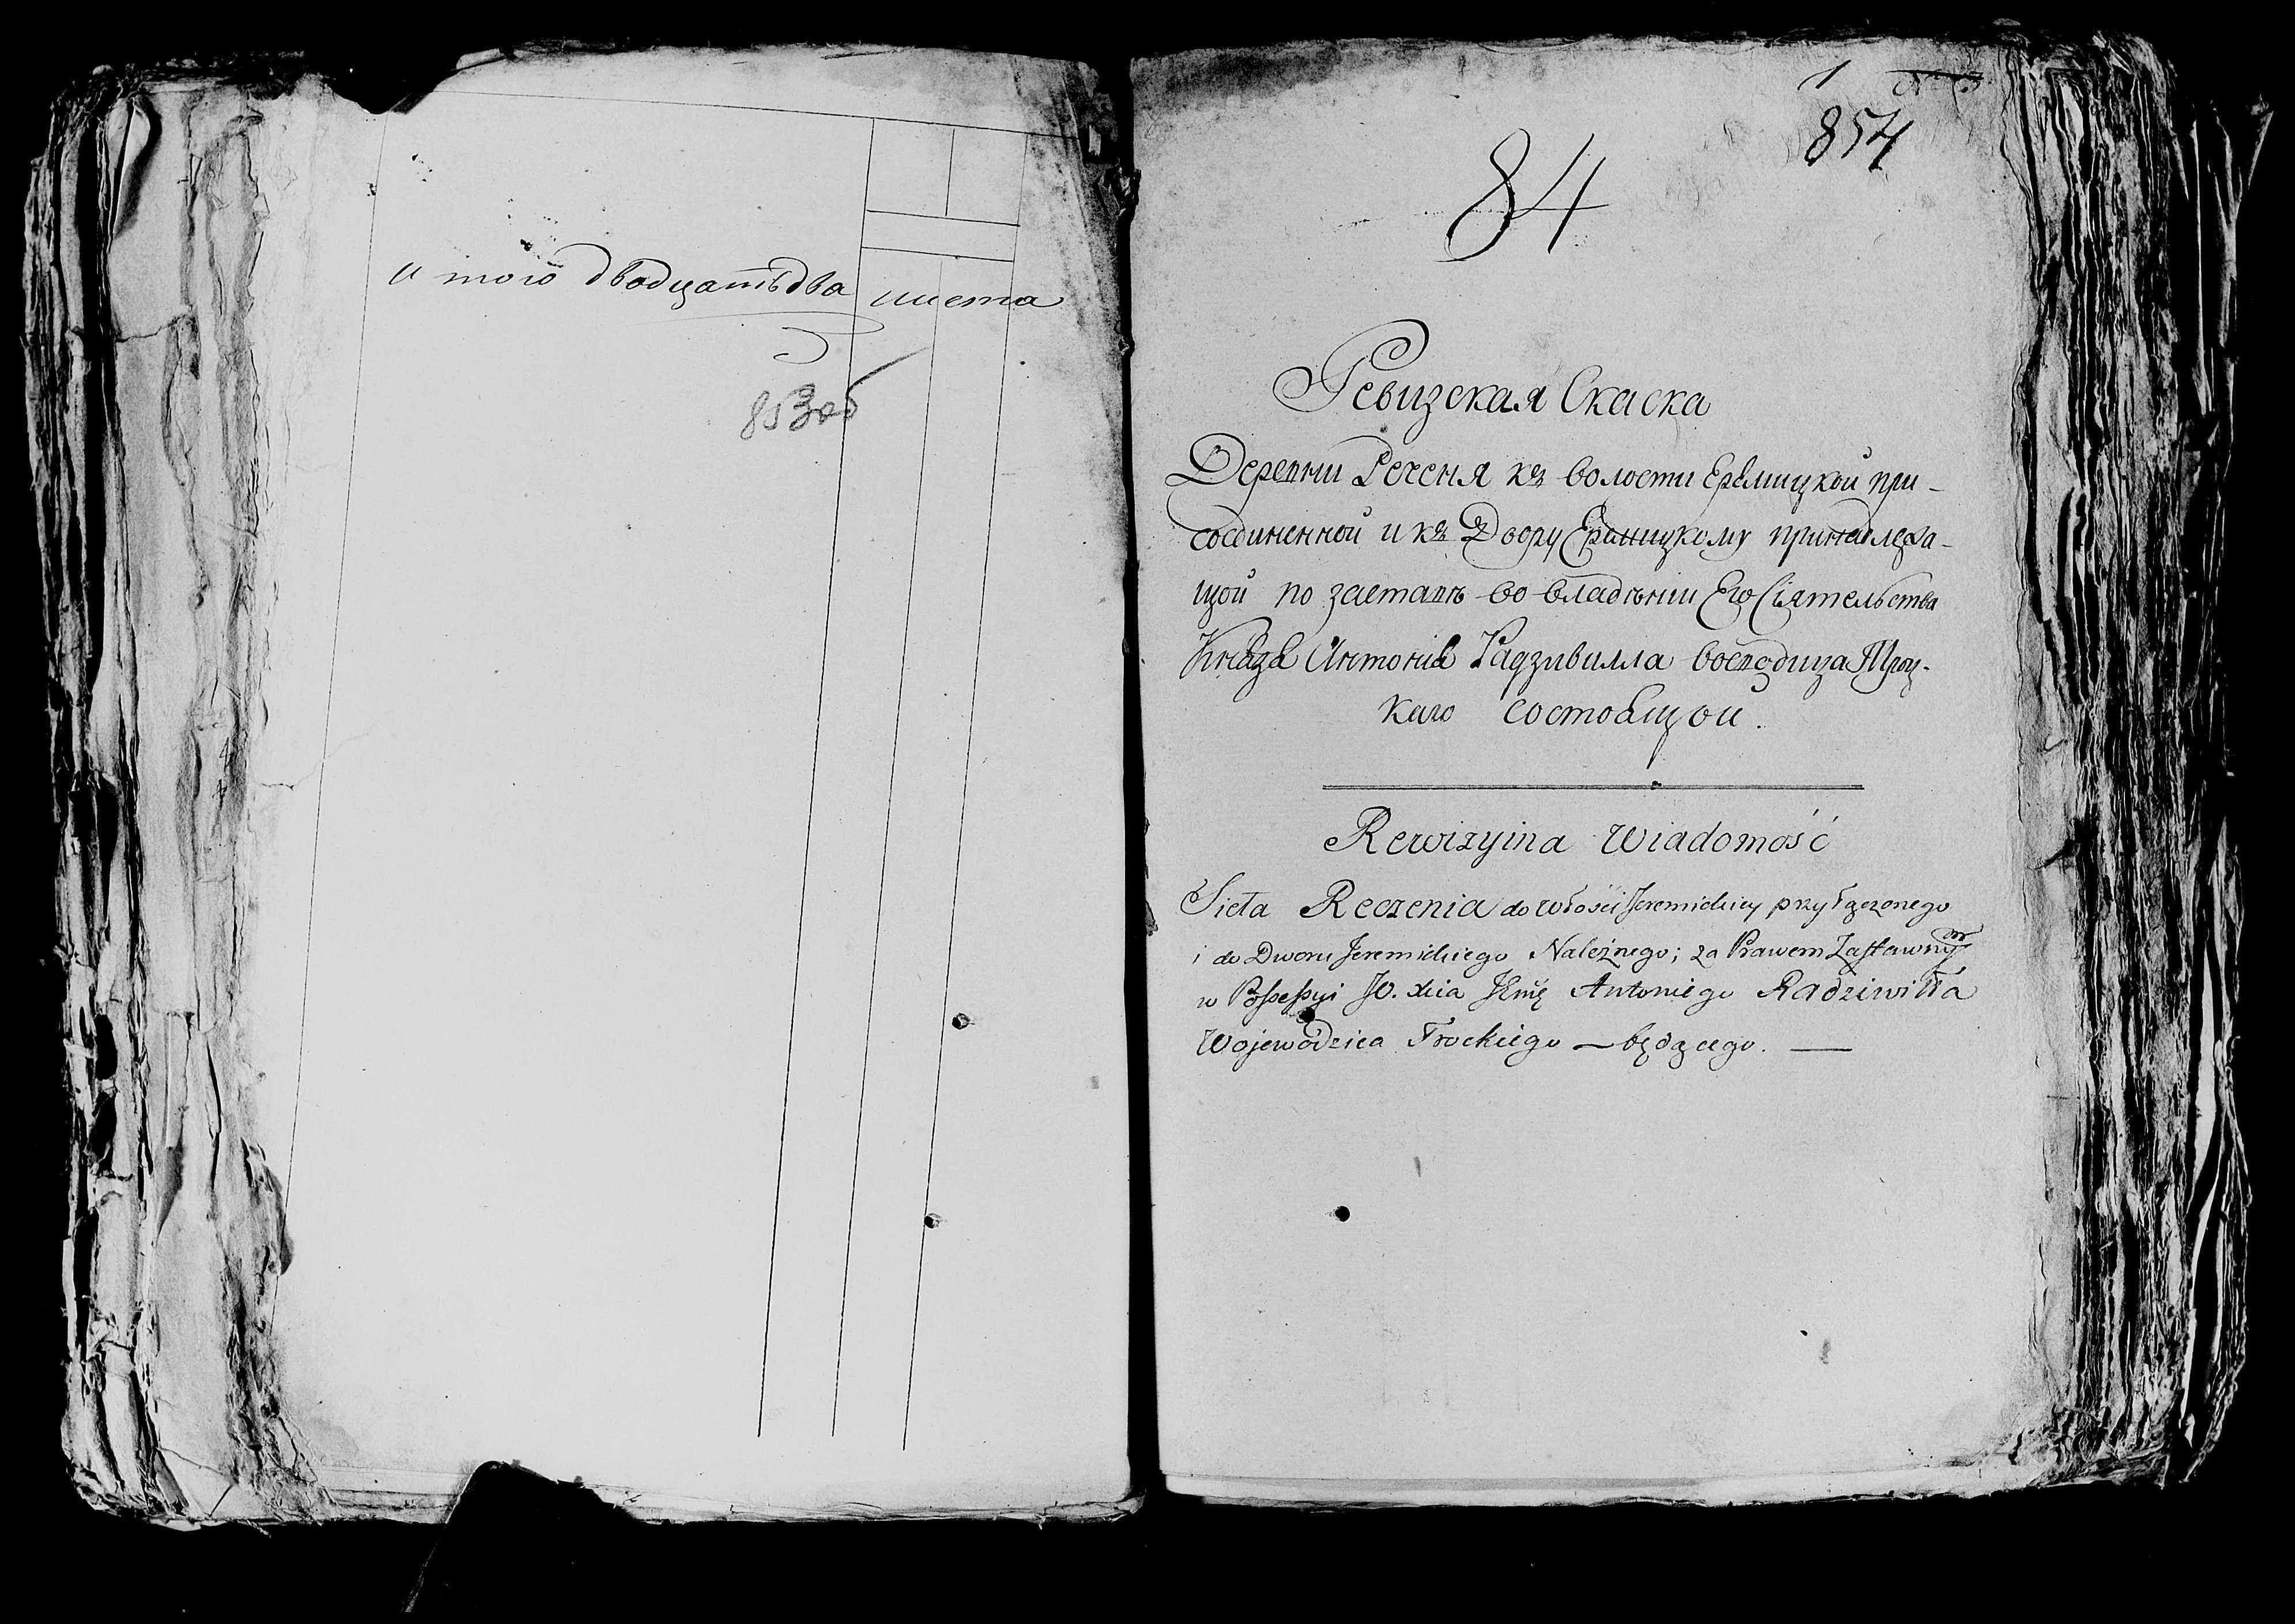 и того двадцать два листа
853об
1
854
84
Ревизская Скаска
Деревни Реченя къ волости Еремицкой при-
соединенной и къ Двору Еремицкому принадлежа-
щой по заставѣ во владѣнии Его Сіятельства
Князя Антонія Радзивилла воеводица Троц-
каго состоящой.
Rewizyina Wiadomość
Sieła Reczenia do włości Jeremickiey przyłączonego
i do Dworu Jeremickiego Należnego; za Prawem Zastawnym
w Possessyi JO. Xcia Jmę Antoniego Radziwiłła
Wojewodzica Trockiego — będącego. —